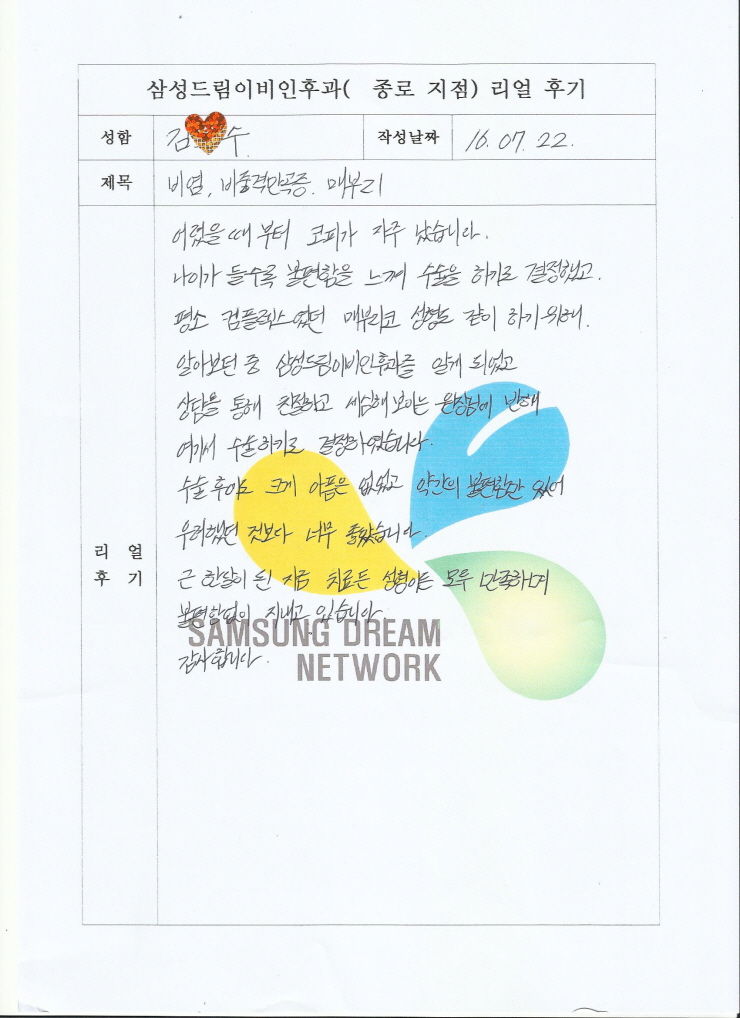 삼성드림이비인후과( 종로 지점) 리얼 후기
성함 김 수. 작성날짜 16. 07. 22.
제목 비염, 비중격만곡증, 매부리
어렸을 때 부터 코피가 자주 났습니다.
나이가 들수록 불편함을 느껴 수술을 하기로 결정했고.
평소 컴플렉스였던 매부리코 성형도 같이 하기위해.
알아보던 중 삼성드림이비인후과를 알게 되었고
상담을 통해 친절하고 세심해보이는 원장님에 반해
여기서 수술하기로 결정하였습니다.
수술 후에도 크게 아픔은 없었고 약간의 불편함만 있어
우려했던 것보다 너무 좋았습니다.
리 얼
후 기
근 한달이 된 지금 치료든 성형이든 모두 만족하며
불편함없이 지내고 있습니다.
감사합니다.
SAMSUNG DREAM
NETWORK